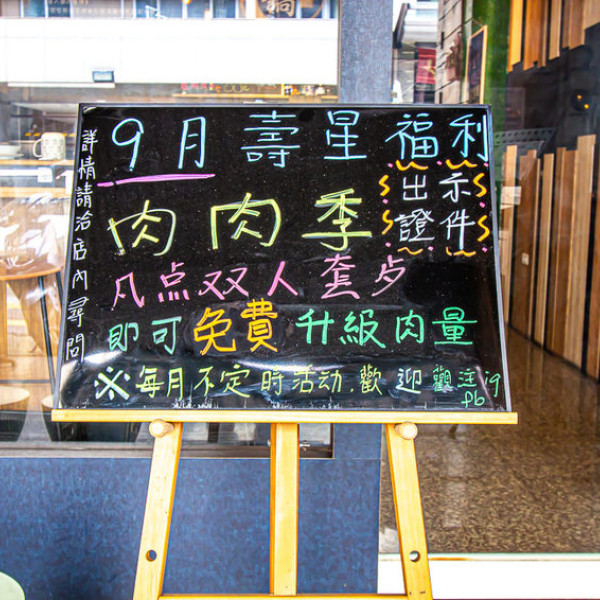 9月 壽星 福利
出示證件
肉肉季
凡点双人套歺
即可免費升級肉量
※每月不定時活动.歡迎觀注ig
fb
詳情請洽店內尋問